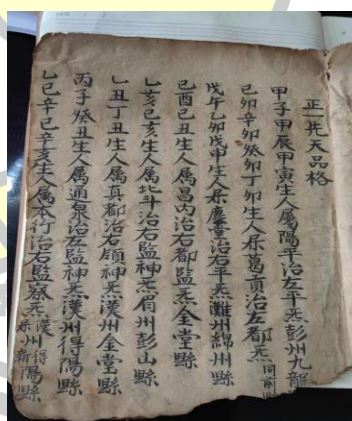 正一先天品格
甲子甲辰甲寅生人属陽平治左平炁彭州九龍
己卯辛卯癸卯丁卯生人系葛貢治左都炁同前縣
戊午乙卯戊申生人系鹿臺治右平炁灘州綿州縣
己酉己丑生人属昌内治右都監炁金堂縣
乙亥己亥生人属北斗治右監神炁眉州彭山縣
乙丑丁丑生人属真都治右領神炁漢州金堂縣
丙子癸丑生人属通泉治左監神炁漢州得陽縣
乙巳辛巳辛亥生人属本行治右監察炁漢州得陽縣